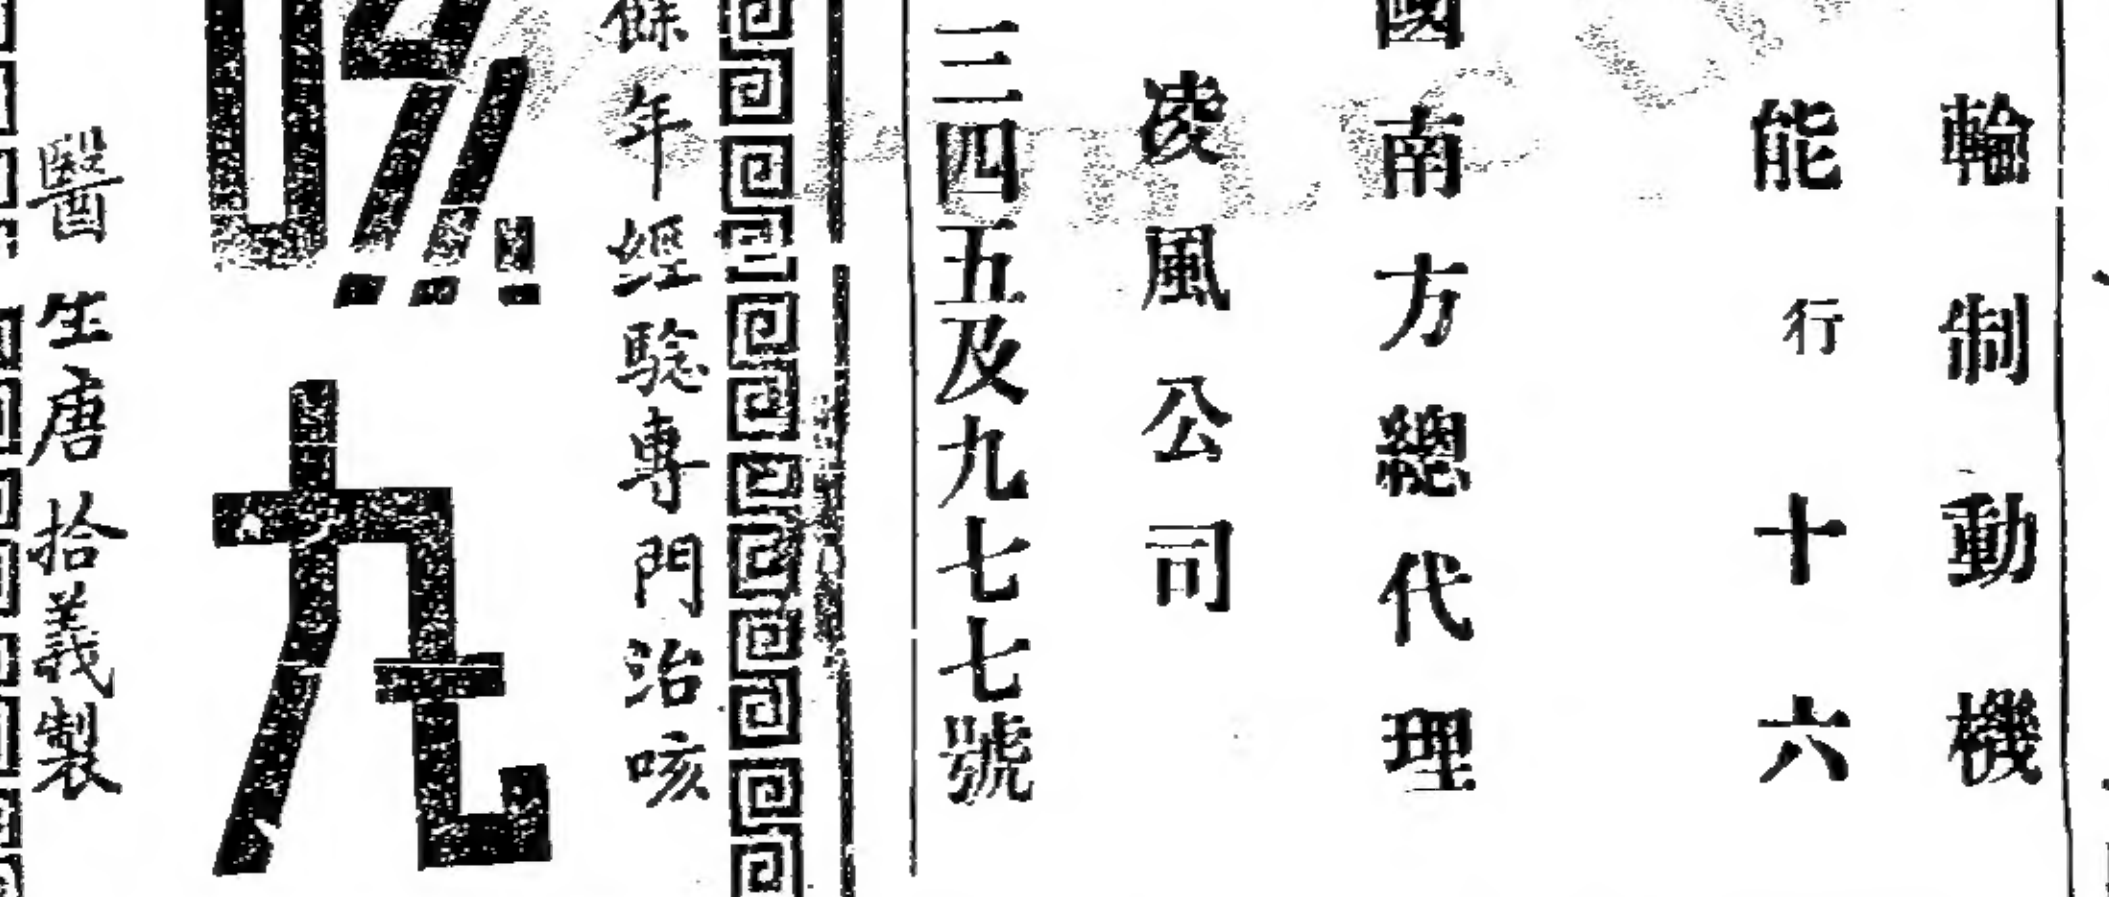 輪制動機
能行十六
國南方總代理
凌風公司
三四五及九七七號
餘年經驗專門治咳
丸
醫生唐拾義製